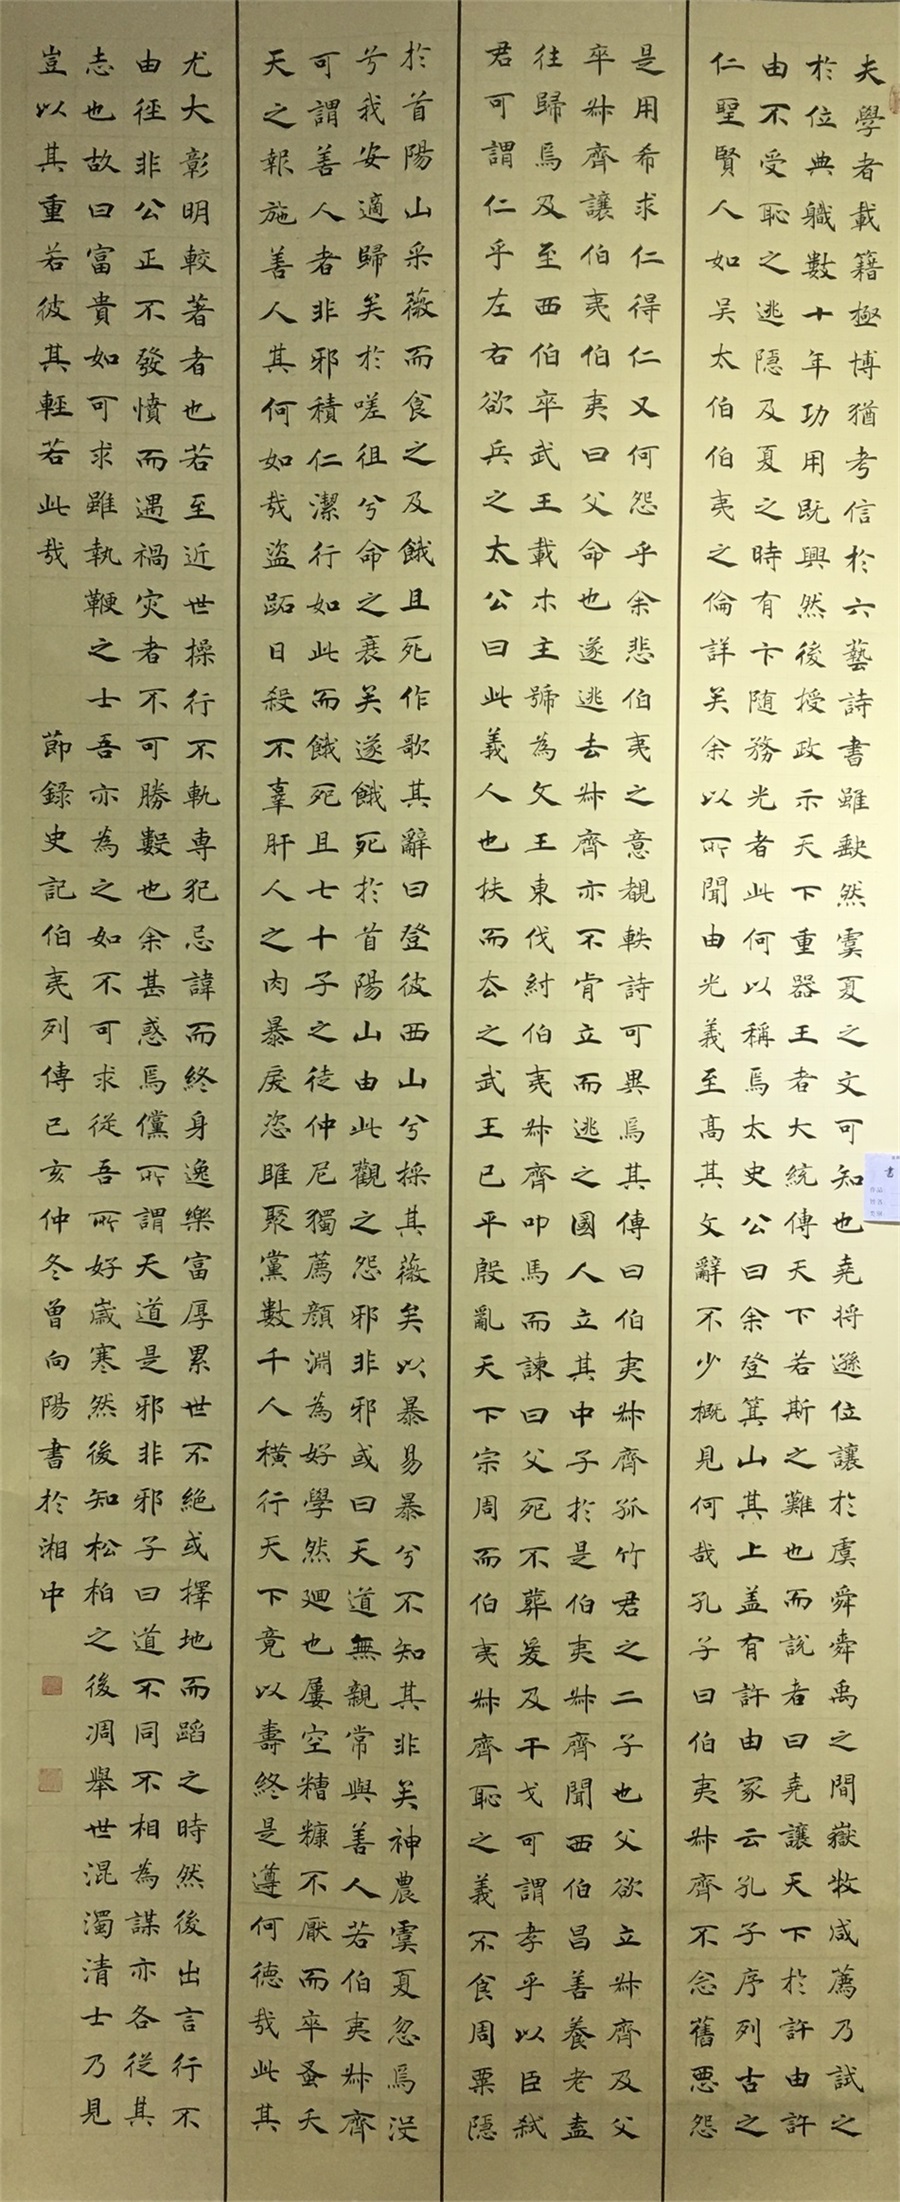 夫學者載籍極博猶考信於六藝詩書雖缺然虞夏之文可知也堯將遜位讓於虞舜舜禹之間嶽牧咸薦乃試之
於位典職數十年功用既興然後授政示天下重器王者大統傳天下若斯之難也而說者曰堯讓天下於許由許
由不受恥之逃隱及夏之時有卞随務光者此何以稱焉太史公曰余登箕山其上盖有許由冢云孔子序列古之
仁聖賢人如吴太伯伯夷之倫詳矣余以所聞由光義至高其文辭不少概見何哉孔子曰伯夷叔齊不念舊惡怨
是用希求仁得仁又何怨乎余悲伯夷之意覩軼詩可異焉其傳曰伯夷叔齊孤竹君之二子也父欲立叔齊及父
卒叔齊讓伯夷伯夷曰父命也遂逃去叔齊亦不肯立而逃之國人立其中子於是伯夷叔齊聞西伯昌善養老盍
往歸焉及至西伯卒武王載木主號為文王東伐紂伯夷叔齊叩馬而諫曰父死不葬爰及干戈可謂孝乎以臣弑
君可謂仁乎左右欲兵之太公曰此義人也扶而去之武王已平殷亂天下宗周而伯夷叔齊恥之義不食周粟隱
於首陽山采薇而食之及餓且死作歌其辭曰登彼西山兮採其薇矣以暴易暴兮不知其非矣神農虞夏忽焉没
兮我安適歸矣於嗟徂兮命之衰矣遂餓死於首陽山由此觀之怨邪非邪或曰天道無親常與善人若伯夷叔齊
可謂善人者非邪積仁潔行如此而餓死且七十子之徒仲尼獨薦顔淵為好學然廻也屢空糟糠不厭而卒蚤夭
天之報施善人其何如哉盜跖日殺不辜肝人之肉暴戾恣睢聚黨數千人橫行天下竟以壽終是遵何德哉此其
尤大彰明較著者也若至近世操行不軌専犯忌諱而終身逸樂富厚累世不絶或擇地而蹈之時然後出言行不
由徑非公正不發憤而遇禍灾者不可勝數也余甚惑焉儻所謂天道是邪非邪子曰道不同不相為謀亦各従其
志也故曰富貴如可求雖執鞭之士吾亦為之如不可求従吾所好歲寒然後知松柏之後凋舉世混濁清士乃見
豈以其重若彼其輕若此哉
節錄史記伯夷列傳己亥仲冬曾向陽書於湘中